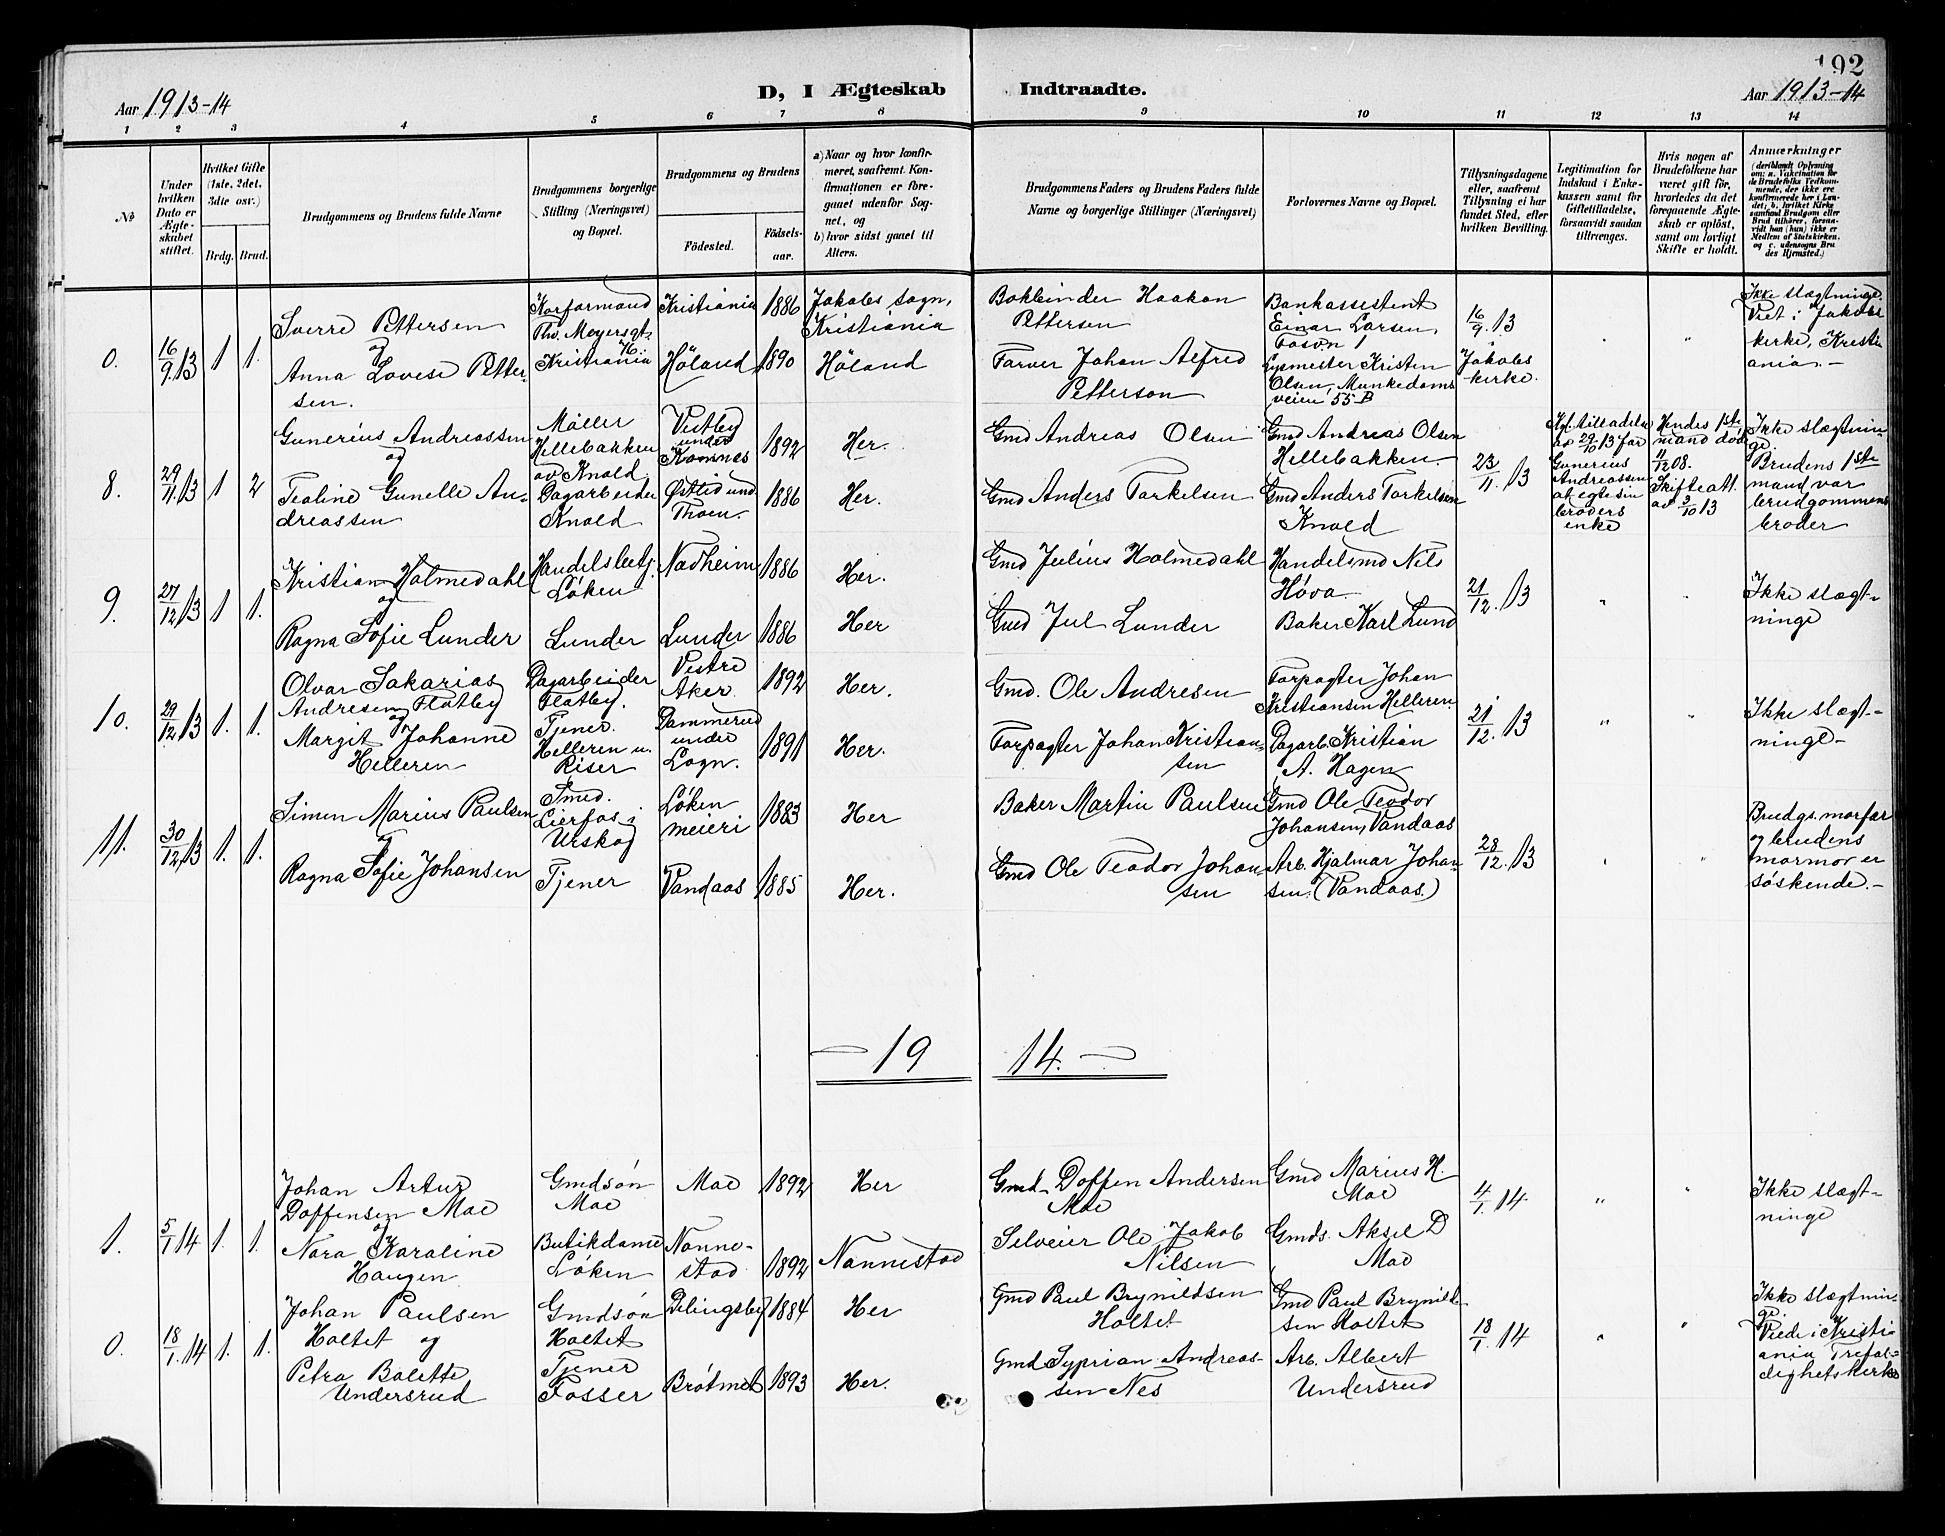 192
Aar 1913-14
D, I Ægteskab Indtraadte.
Aar 1913-14
1 2 3 4 5 6 7 8 9 10 11 12 13 14
№
Under hvilken Dato er Ægteskabet stiftet.
Hvilket Gifte (1ste, 2det, 3dte osv.)
Brdg. Brud.
Brudgommens og Brudens fulde Navne
Brudgommens borgerlige Stilling (Næringsvei) og Bopæl.
Brudgommens og Brudens
Fødested. Fødselsaar.
a) Naar og hvor konfirmeret, saafremt Konfirmationen er foregaaet udenfor Sognet, og
b) hvor sidst gaaet til Alters.
Brudgommens Faders og Brudens Faders fulde Navne og borgerlige Stillinger (Næringsvei)
Forlovernes Navne og Bopæl.
Tillysningsdagene eller, saafremt Tillysning ei har fundet Sted, efter hvilken Bevilling.
Legitimation for Indskud i Enkekassen samt for Giftetilladelse, forsaavidt saadan tiltrænges.
Hvis nogen af Brudefolkene har været gift før, hvorledes da det foregaaende Ægteskab er opløst, samt om lovligt Skifte er holdt.
Anmærkninger (deriblandt Oplysning om: a. Vakcination for de Brudefolks Vedkommende, der ikke ere konfirmerede her i Landet; b. hvilket Kirkesamfund Brudgom eller Brud tilhører, forsaavidt han (hun) ikke er Medlem af Statskirken, og c. udensogns Brudes Hjemsted.)
0. 16/9 13 1 1.
Sverre Pettersen
og
Anna Lovise Petter-
sen.
Korformand
Thv. Meyersgt.
Kristiania
Kristiania 1886
Høland 1890
Jakobs sogn,
Kristiania
Høland
Bokbinder Haakon
Pettersen
Farver Johan Alfred
Petterson
Bankassistent
Einar Larsen,
Lysmester Kristen
Olsen, Munkedams
veien 55 B
16/9. 13
Jakobs
kirke.
Ikke slægtninge.
Viet i Jakobs
kirke, Kristi
ania.-
8. 29/11 13 1 2
Gunerius Andreassen
og
Tealine Gunelle An-
dreassen
Møller
Hellebakken
av Knold
Dagarbeider
Knold
Vestby
under
Komnes 1892
Østlid und
Thoen. 1886
Her.
Her.
Gmd Andreas Olsen
Gmd Anders Torkelsen
Gmd Andreas Olsen
Hellebakken.
Gmd Anders Torkelsen
Knold
23/11. 13
Kgl. tilladelse
av 29/10 13 for
Gunerius
Andreassen
at egte sin
broders
enke
Hendes 1ste
mand død
4/12 08.
Skifteatt.
av 3/10 13
Ikke slægtnin-
ge.
Brudens 1ste
mand var
brudgommens
broder
9. 27/12 13 1 1.
Kristian Holmedahl
og
Ragna Sofie Lunder
Handelsbetj.
Løken
Lunder
Nadheim 1886
Lunder 1886
Her.
Her
Gmd Julius Holmedahl
Gmd Jul Lunder
Handelsmd Nils
Høva
Baker Karl Lund
21/12. 13
Ikke slægt-
ninge
10. 29/12 13 1. 1.
Olvar Sakarias
Andresen Flatby
og
Margit Johanne
Helleren
Dagarbeider
Flatby.
Tjener.
Helleren u.
Riser
Vestre
Aker. 1892
Dammerud
under
Logn. 1891
Her.
Her.
Gmd. Ole Andresen
Forpagter Johan Kristian-
sen
Forpagter Johan
Kristiansen Helleren.
Dagarb. Kristian
A. Hagen
21/12. 13
Ikke slægt-
ninge-
11. 30/12 13 1. 1.
Simen Marius Paulsen
og
Ragna Sofie Johansen
Smed.
Lierfos i
Urskog
Tjener
Løken
meieri 1883
Vandaas 1885
Her
Her.
Baker Martin Paulsen
Gmd Ole Teodor Johan-
sen
Gmd Ole Teodor
Johansen, Vandaas
Arb. Hjalmar Johan-
sen. (Vandaas.)
28/12. 13
Brudgs. morfar
og brudens
mormor er
søskende.-
- 19 14. -
1. 5/1 14 1. 1.
Johan Artur
Doffensen Moe
og
Nora Karoline
Haugen
Gmdsøn
Moe
Butikdame
Løken
Moe 1892
Nanne-
stad 1892
Her
Nannestad
Gmd. Doffen Andersen
Moe
Selveier Ole Jakob
Nilsen
Gmd Marius H.
Moe
Gmds. Aksel D
Moe
4/1. 14
Ikke slægt-
ninge
0. 18/1. 14 1. 1.
Johan Paulsen
Holtet og
Petra Bolette
Undersrud
Gmdsøn
Holtet
Tjener
Fosser
Delingsby 1884
Brøtmet 1893
Her
Her.
Gmd Paul Brynildsen
Holtet
Gmd Syprian Andreas-
sen Nes
Gmd Paul Brynild-
sen Holtet
Arb. Albert
Undersrud
18/1. 14
Ikke slægtnin-
ge.
Viede i Kristi
ania Trefol-
dighetskirke